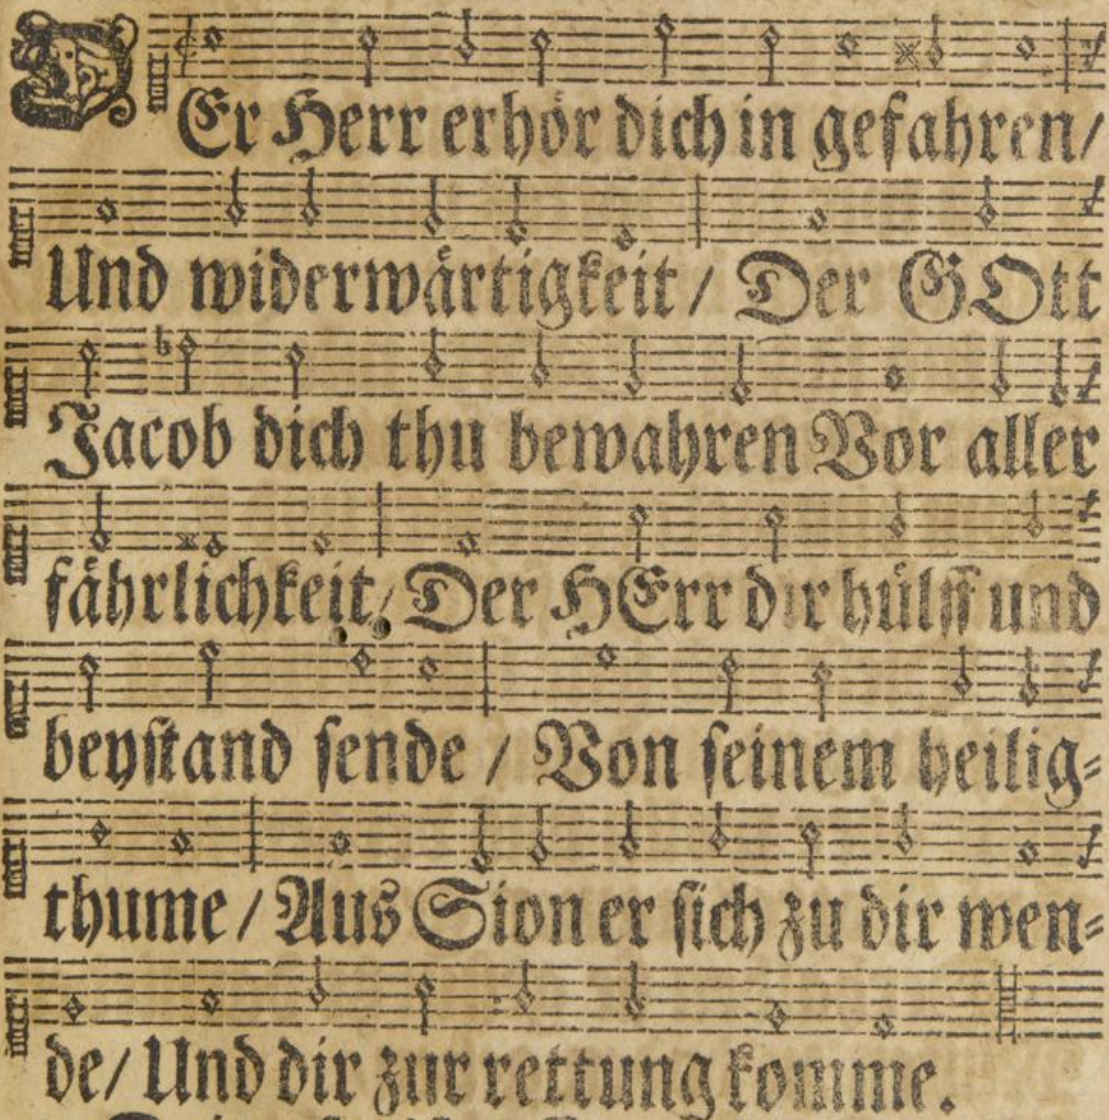 DEr Herr erhör dich in gefahren/
Und widerwärtigkeit / Der GOtt
Jacob dich thu bewahren Vor aller
fährlichkeit/ Der HErr dir hülff und
beystand sende / Von seinem heilig⸗
thume / Aus Sion er sich zu dir wen⸗
de/ Und dir zur rettung komme.